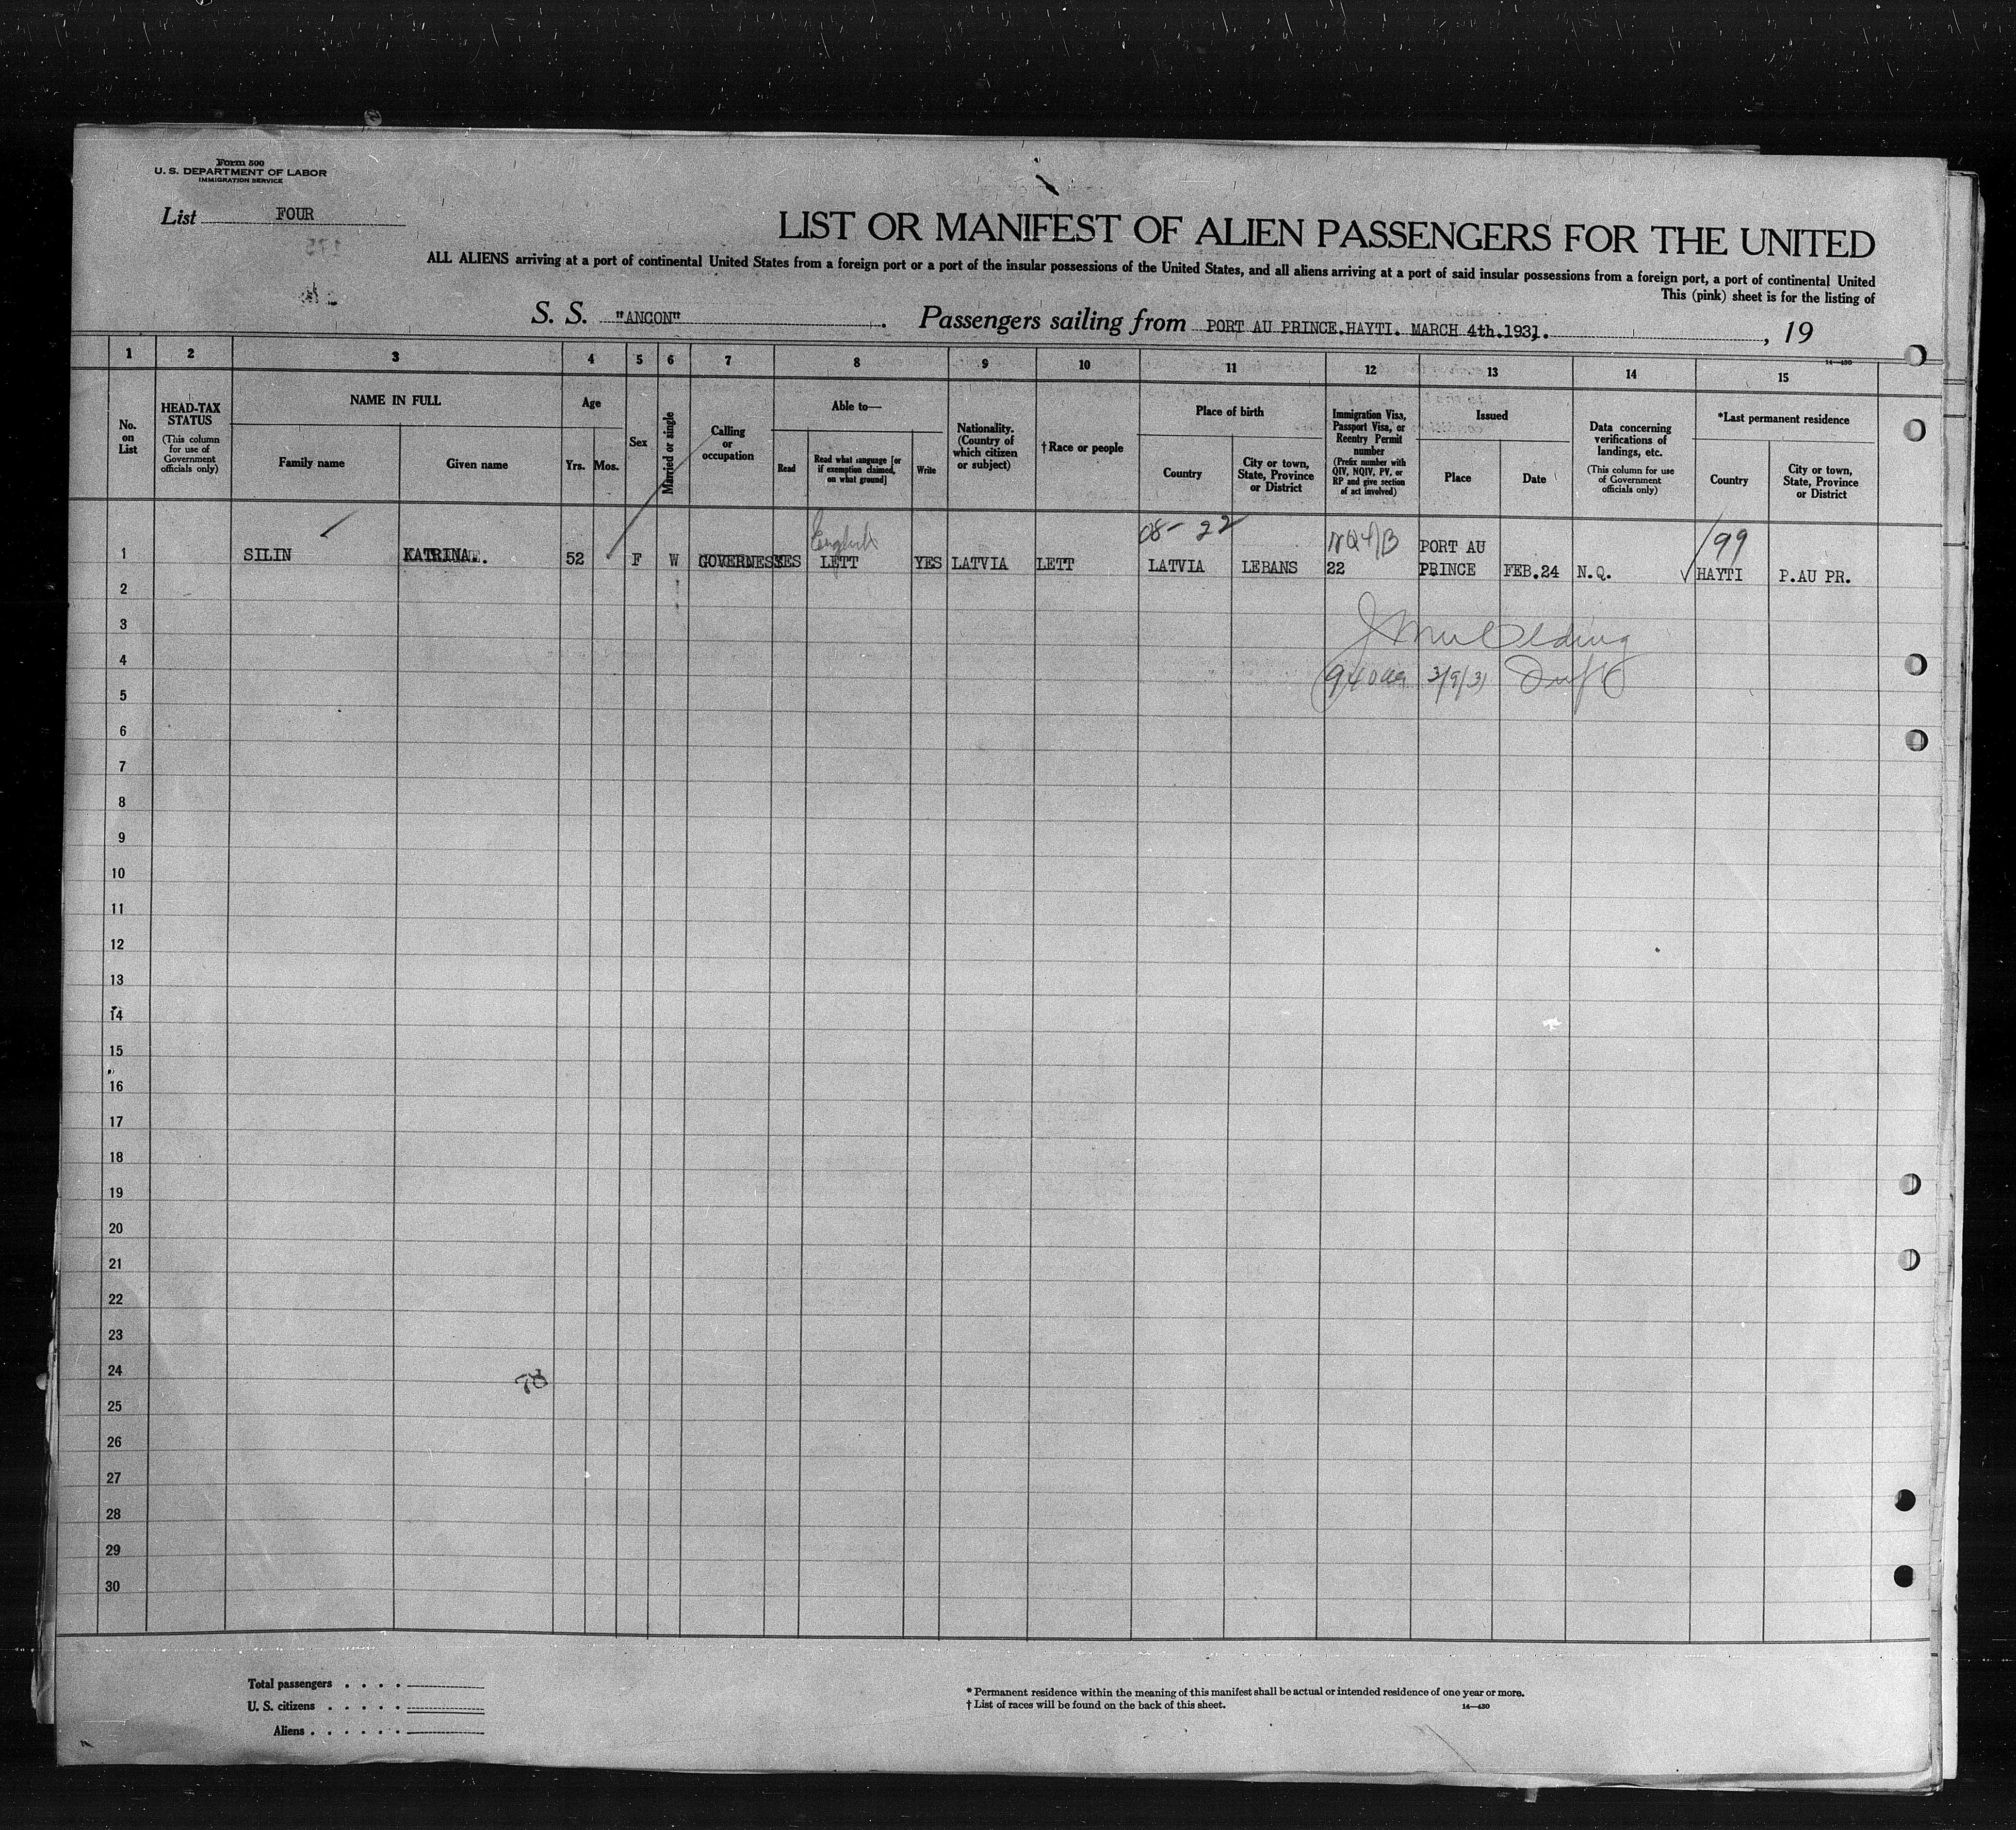 Form 500
U. S. DEPARTMENT OF LABOR
IMMIGRATION SERVICE
List FOUR
LIST OR MANIFEST OF ALIEN PASSENGERS FOR THE UNITED
ALL ALIENS arriving at a port of continental United States from a foreign port or a port of the insular possessions of the United States, and all aliens arriving at a port of said insular possessions from a foreign port, a port of continental United
This (pink) sheet is for the listing of
S. S. "ANCON". Passengers sailing from PORT AU PRINCE.HAYTI. MARCH 4th.1931. , 19
14—430
1 2 3 4 5 6 7 8 9 10 11 12 13 14 15
No. on List
HEAD-TAX STATUS
(This column for use of Government officials only)
NAME IN FULL
Family name
Given name
Age
Yrs. Mos.
Sex
Married or single
Calling or occupation
Able to—
Read
Read what language [or if exemption claimed, on what ground]
Write
Nationality. (Country of which citizen or subject)
† Race or people
Place of birth
Country
City or town, State, Province or District
Immigration Visa, Passport Visa, or Reentry Permit number
(Prefix number with QIV, NQIV, PV, or RP and give section of act involved)
Issued
Place
Date
Data concerning verifications of landings, etc.
(This column for use of Government officials only)
*Last permanent residence
Country
City or town, State, Province or District
English 08- 22 PORT AU 199
1 SILIN KATRINA. 52 F W GOVERNESS YES LETT YES LATVIA LETT LATVIA LEBANS 22 PRINCE FEB.24 N.Q. HAYTI P.AU PR.
2
3
4
3/9/31
5
6
7
8
9
10
11
12
13
14
15
16
17
18
19
20
21
22
23
24
78
25
26
27
28
29
30
Total passengers . . . .
U. S. citizens . . . . .
Aliens . . . . . .
* Permanent residence within the meaning of this manifest shall be actual or intended residence of one year or more.
† List of races will be found on the back of this sheet.
14—430